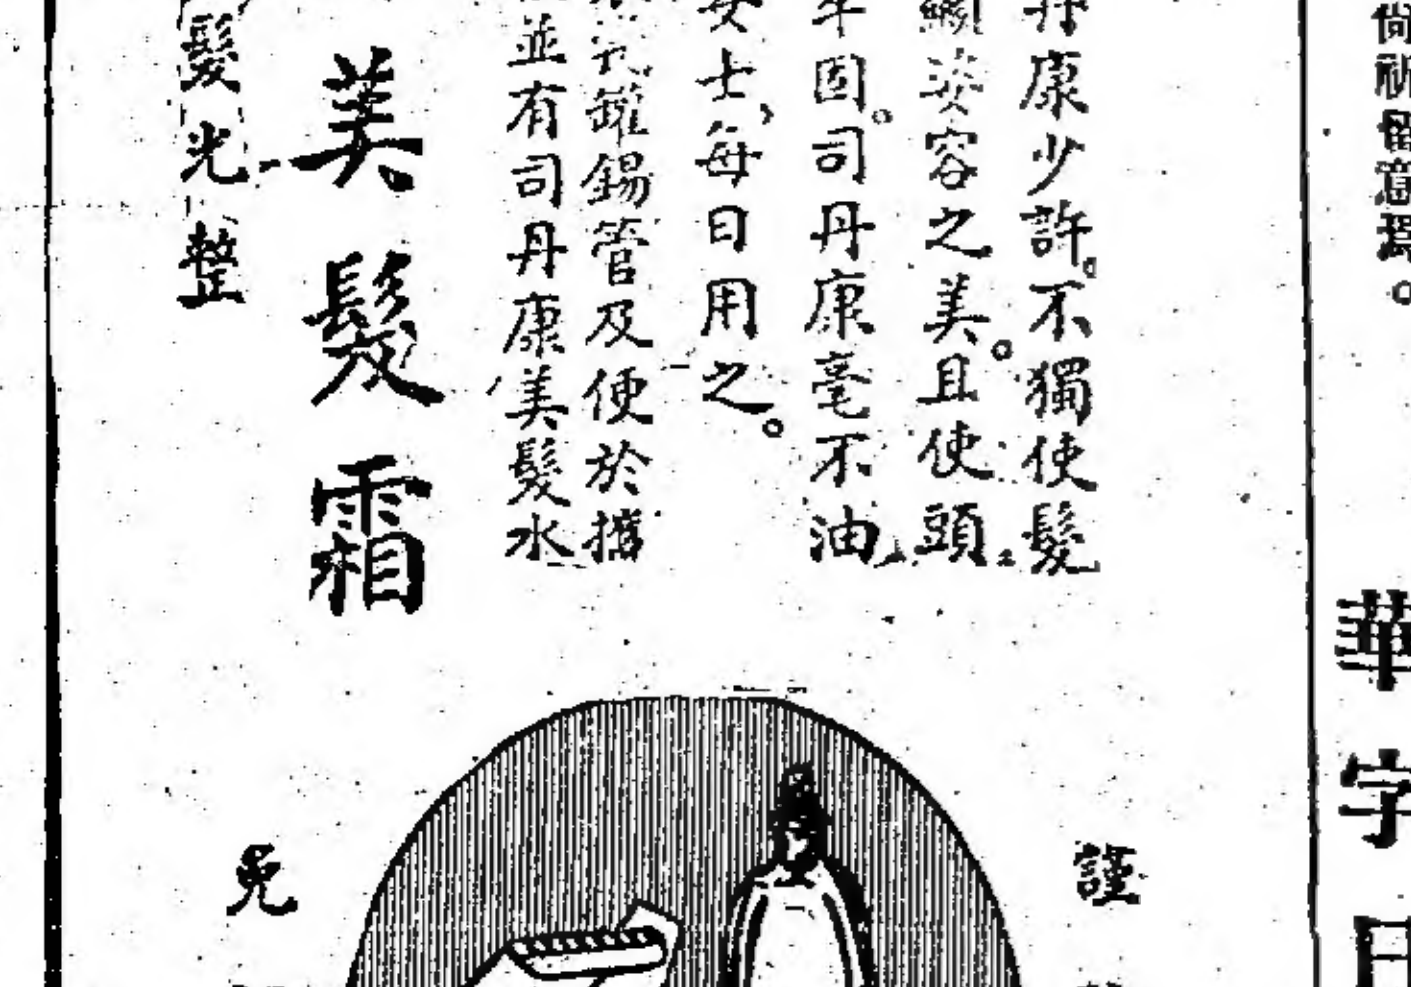 尙祈留意
華字日
丹康少許。不獨使髮
姿容之美。且使頭
牢固。司丹康毫不油
女士，每日用之。
罐錫管及便於攜
並有司丹康美髮水
美髮霜
髮光整
謹
免